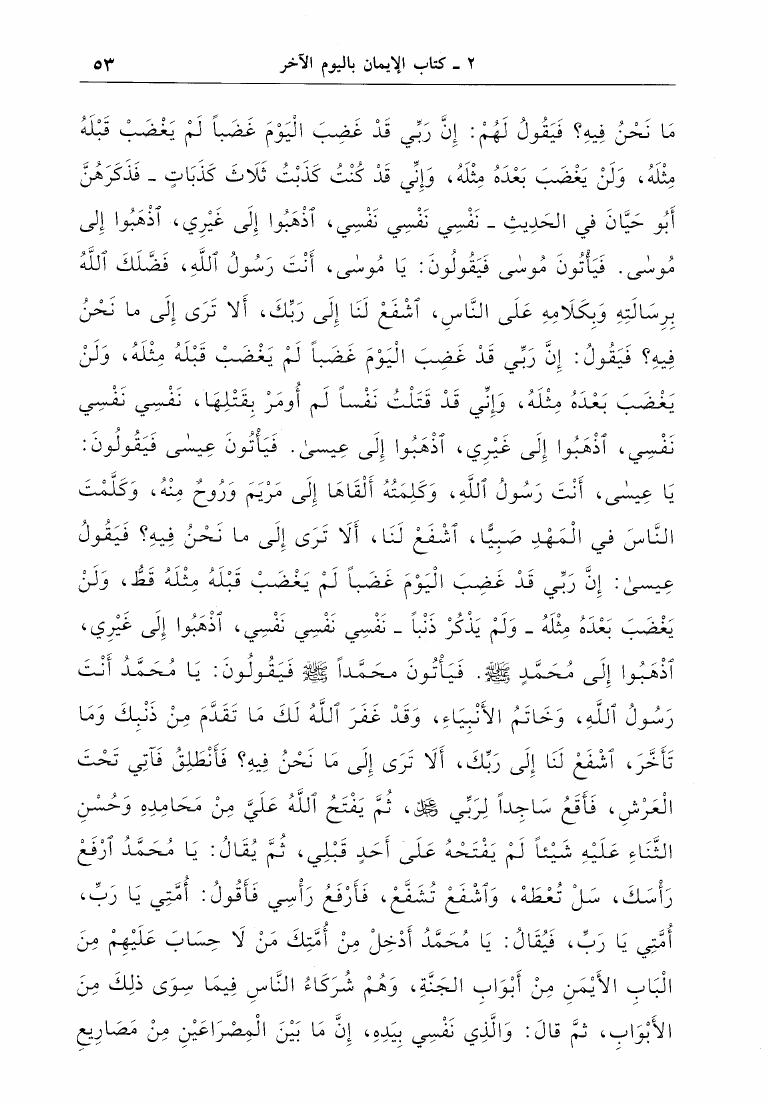 ٢ ـ كتاب الإيمان باليوم الآخر ٥٣
مَا نَحْنُ فِيهِ؟ فَيَقُولُ لَهُمْ: إِنَّ رَبِّي قَدْ غَضِبَ الْيَوْمَ غَضَباً لَمْ يَغْضَبْ قَبْلَهُ
مِثْلَهُ، وَلَنْ يَغْضَبَ بَعْدَهُ مِثْلَهُ، وَإِنِّي قَدْ كُنْتُ كَذَبْتُ ثَلَاثَ كَذَبَاتٍ ـ فَذَكَرَهُنَّ
أَبُو حَيَّانَ في الحَدِيثِ ـ نَفْسِي نَفْسِي نَفْسِي، ٱذْهَبُوا إِلَى غَيْرِي، ٱذْهَبُوا إِلى
مُوسٰى. فَيَأْتُونَ مُوسٰى فَيَقُولُونَ: يَا مُوسٰى، أَنْتَ رَسُولُ ٱللَّهِ، فَضَّلَكَ ٱللَّهُ
بِرِسَالَتِهِ وَبِكَلَامِهِ عَلَى النَّاسِ، ٱشْفَعْ لَنَا إِلَى رَبِّكَ، أَلَا تَرَى إِلَى ما نَحْنُ
فِيهِ؟ فَيَقُولُ: إِنَّ رَبِّي قَدْ غَضِبَ الْيَوْمَ غَضَباً لَمْ يَغْضَبْ قَبْلَهُ مِثْلَهُ، وَلَنْ
يَغْضَبَ بَعْدَهُ مِثْلَهُ، وَإِنِّي قَدْ قَتَلْتُ نَفْساً لَم أُومَرْ بِقَتْلِهَا، نَفْسِي نَفْسِي
نَفْسِي، ٱذْهَبُوا إِلَى غَيْرِي، ٱذْهَبُوا إِلَى عِيسىٰ. فَيَأْتُونَ عِيسٰى فَيَقُولُونَ:
يَا عِيسٰى، أَنْتَ رَسُولُ ٱللَّهِ، وَكَلِمَتُهُ أَلْقَاهَا إِلَى مَرْيَمَ وَرُوحٌ مِنْهُ، وَكَلَّمْتَ
النَّاسَ في الْمَهْدِ صَبِيًّا، ٱشْفَعْ لَنَا، أَلَا تَرَى إِلَى ما نَحْنُ فِيهِ؟ فَيَقُولُ
عِيسىٰ: إِنَّ رَبِّي قَدْ غَضِبَ الْيَوْمَ غَضَباً لَمْ يَغْضَبْ قَبْلَهُ مِثْلَهُ قَطُّ، وَلَنْ
يَغْضَبَ بَعْدَهُ مِثْلَهُ ـ وَلَمْ يَذْكُرْ ذَنْباً ـ نَفْسِي نَفْسِي نَفْسِي، ٱذْهَبُوا إِلَى غَيْرِي،
ٱذْهَبُوا إِلَى مُحَمَّدٍ ﷺ. فَيَأْتُونَ محَمَّداً ﷺ فَيَقُولُونَ: يَا مُحَمَّدُ أَنْتَ
رَسُولُ ٱللَّهِ، وَخَاتَمُ الأَنْبِيَاءِ، وَقَدْ غَفَرَ ٱللَّهُ لَكَ مَا تَقَدَّمَ مِنْ ذَنْبِكَ وَمَا
تَأَخَّرَ، ٱشْفَعْ لَنَا إِلَى رَبِّكَ، أَلَا تَرَى إِلَى مَا نَحْنُ فِيهِ؟ فَأَنْطَلِقُ فَآتِي تَحْتَ
الْعَرْشِ، فَأَقَعُ سَاجِداً لِرَبِّي ﷻ، ثُمَّ يَفْتَحُ ٱللَّهُ عَلَيَّ مِنْ مَحَامِدِهِ وَحُسْنِ
الثَّنَاءِ عَلَيْهِ شَيْئاً لَمْ يَفْتَحْهُ عَلَى أَحَدٍ قَبْلِي، ثُمَّ يُقَالُ: يَا مُحَمَّدُ ٱرْفَعْ
رَأْسَكَ، سَلْ تُعْطَهْ، وَٱشْفَعْ تُشَفَّعْ، فَأَرْفَعُ رَأْسِي فَأَقُولُ: أُمَّتِي يَا رَبِّ،
أُمَّتِي يَا رَبِّ، فَيُقَالُ: يَا مُحَمَّدُ أَدْخِلْ مِنْ أُمَّتِكَ مَنْ لَا حِسَابَ عَلَيْهِمْ مِنَ
الْبَابِ الأَيْمَنِ مِنْ أَبْوَابِ الجَنَّةِ، وَهُمْ شُرَكَاءُ النَّاسِ فِيمَا سِوَى ذٰلِكَ مِنَ
الأَبْوَابِ، ثمَّ قالَ: وَالَّذِي نَفْسِي بِيَدِهِ، إِنَّ مَا بَيْنَ الْمِصْرَاعَيْنِ مِنْ مَصَارِيعِ